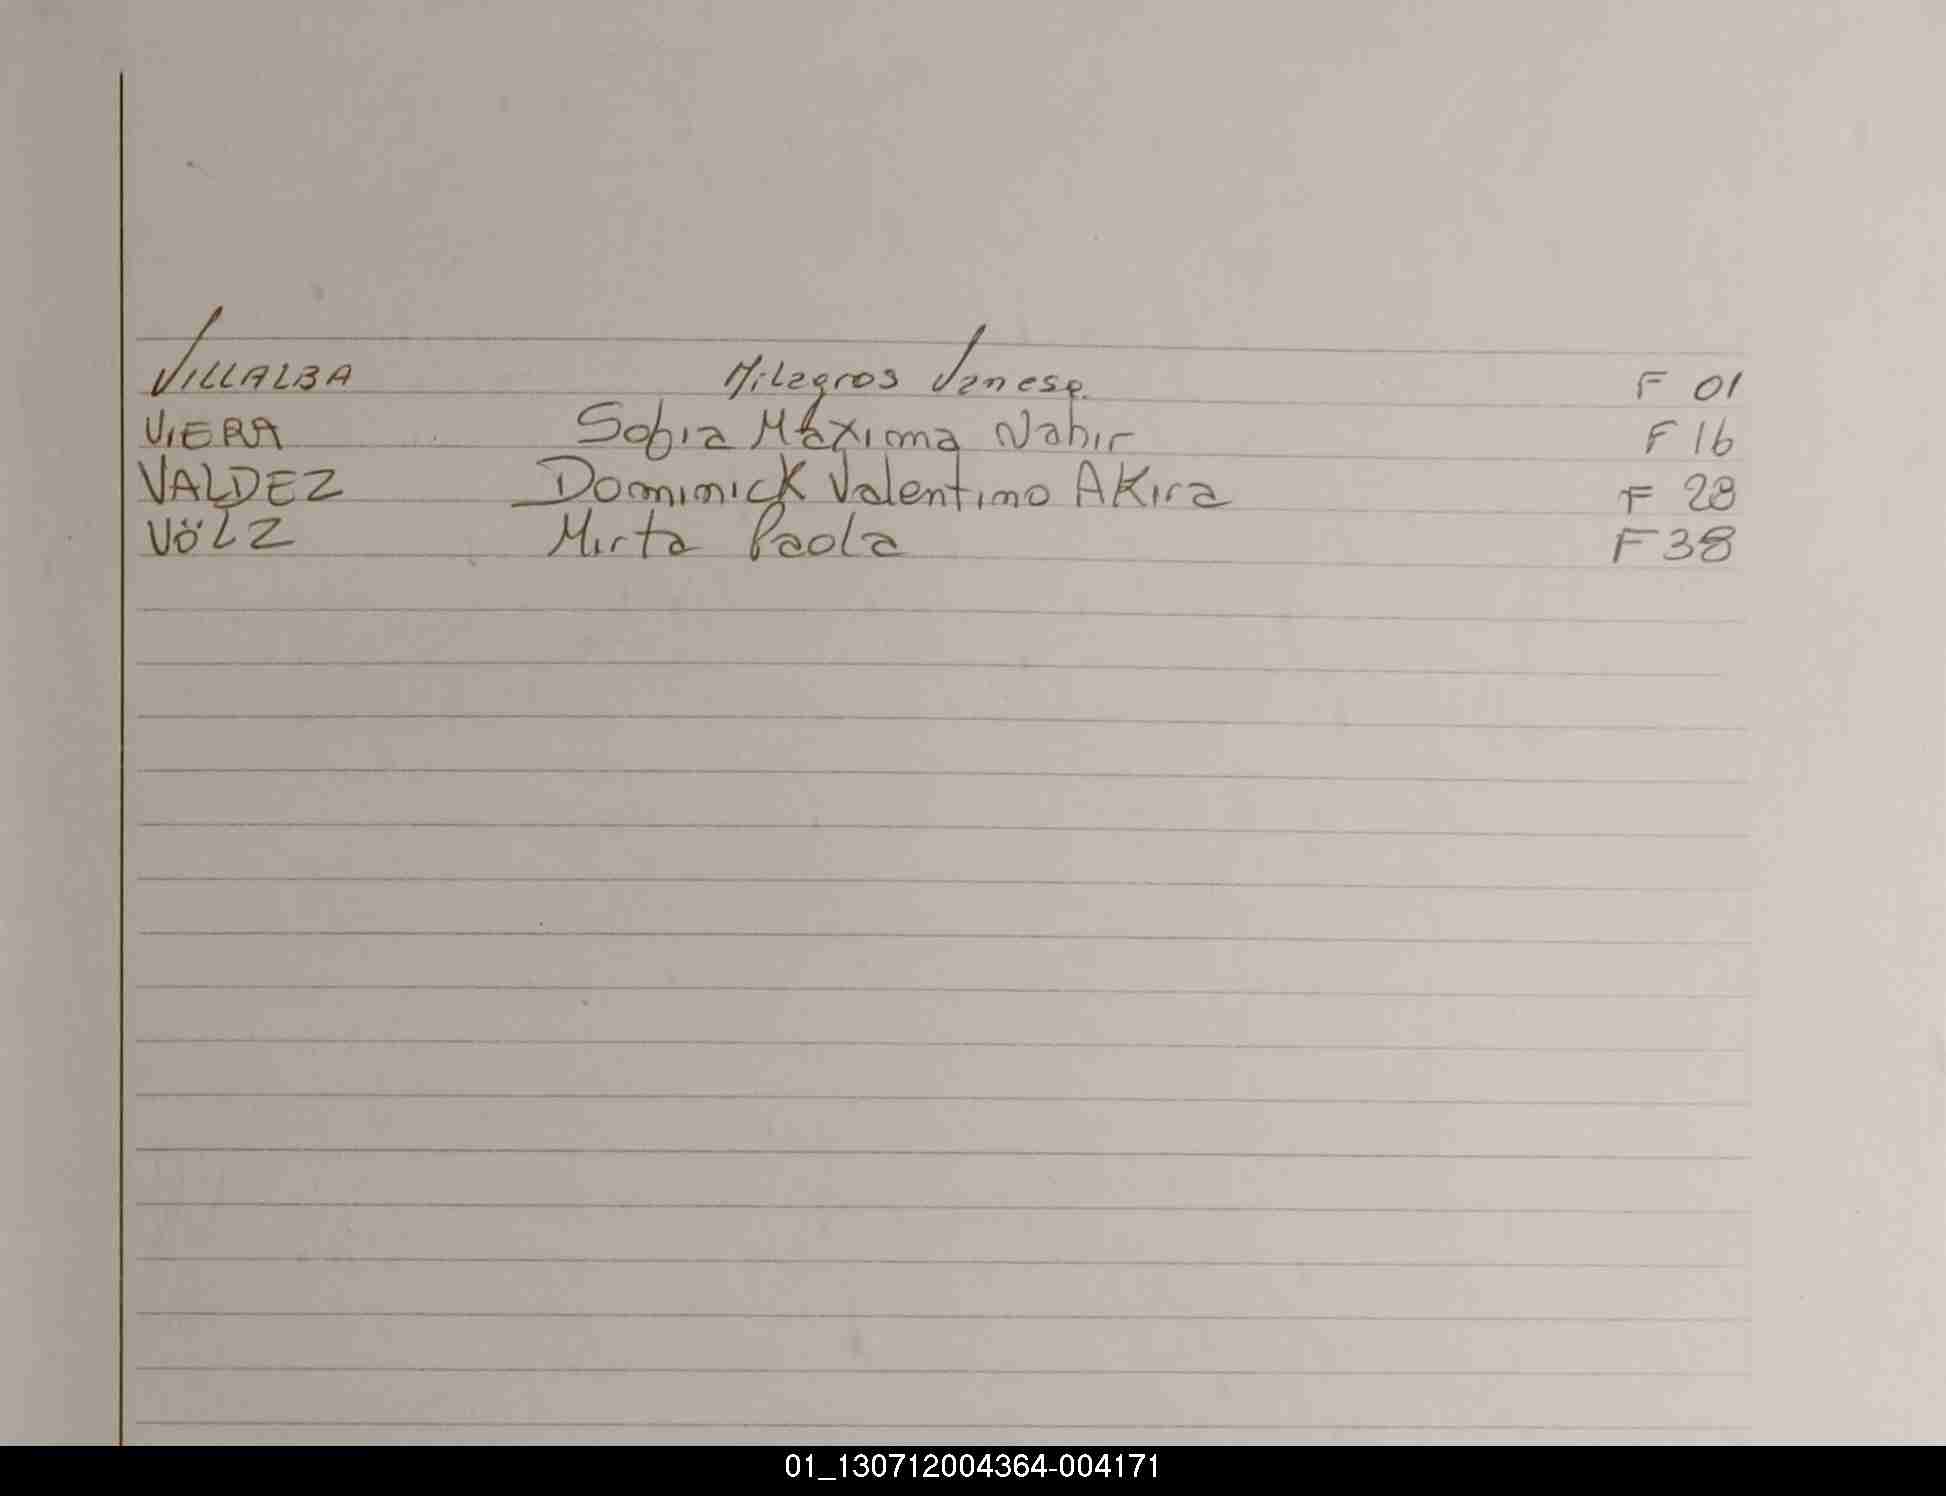 VILLALBA Milagros Vanesa F 01
VIERA Sofia Máxima Nahir F 16
VALDEZ Dominick Valentino Akira F 28
VÖLZ Mirta Paola F 38
01_130712004364-004171